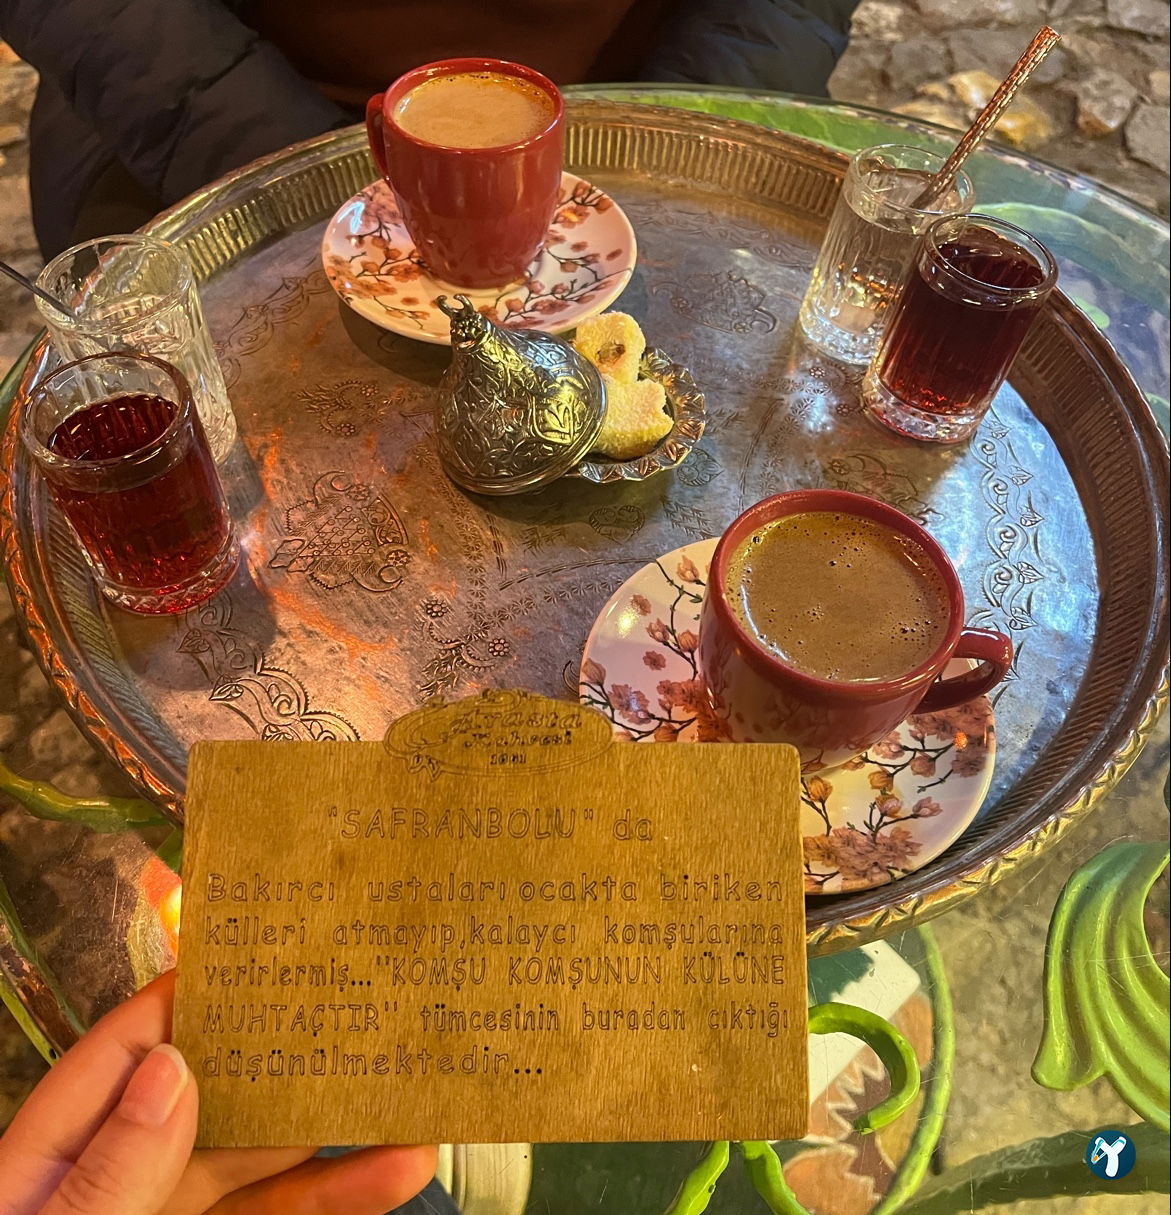 Arasta
Kahvesi
1661
"SAFRANBOLU" da
Bakırcı ustaları ocakta biriken
külleri atmayıp,kalaycı komşularına
verirlermiş..."KOMŞU KOMŞUNUN KÜLÜNE
MUHTAÇTIR" tümcesinin buradan çıktığı
düşünülmektedir...